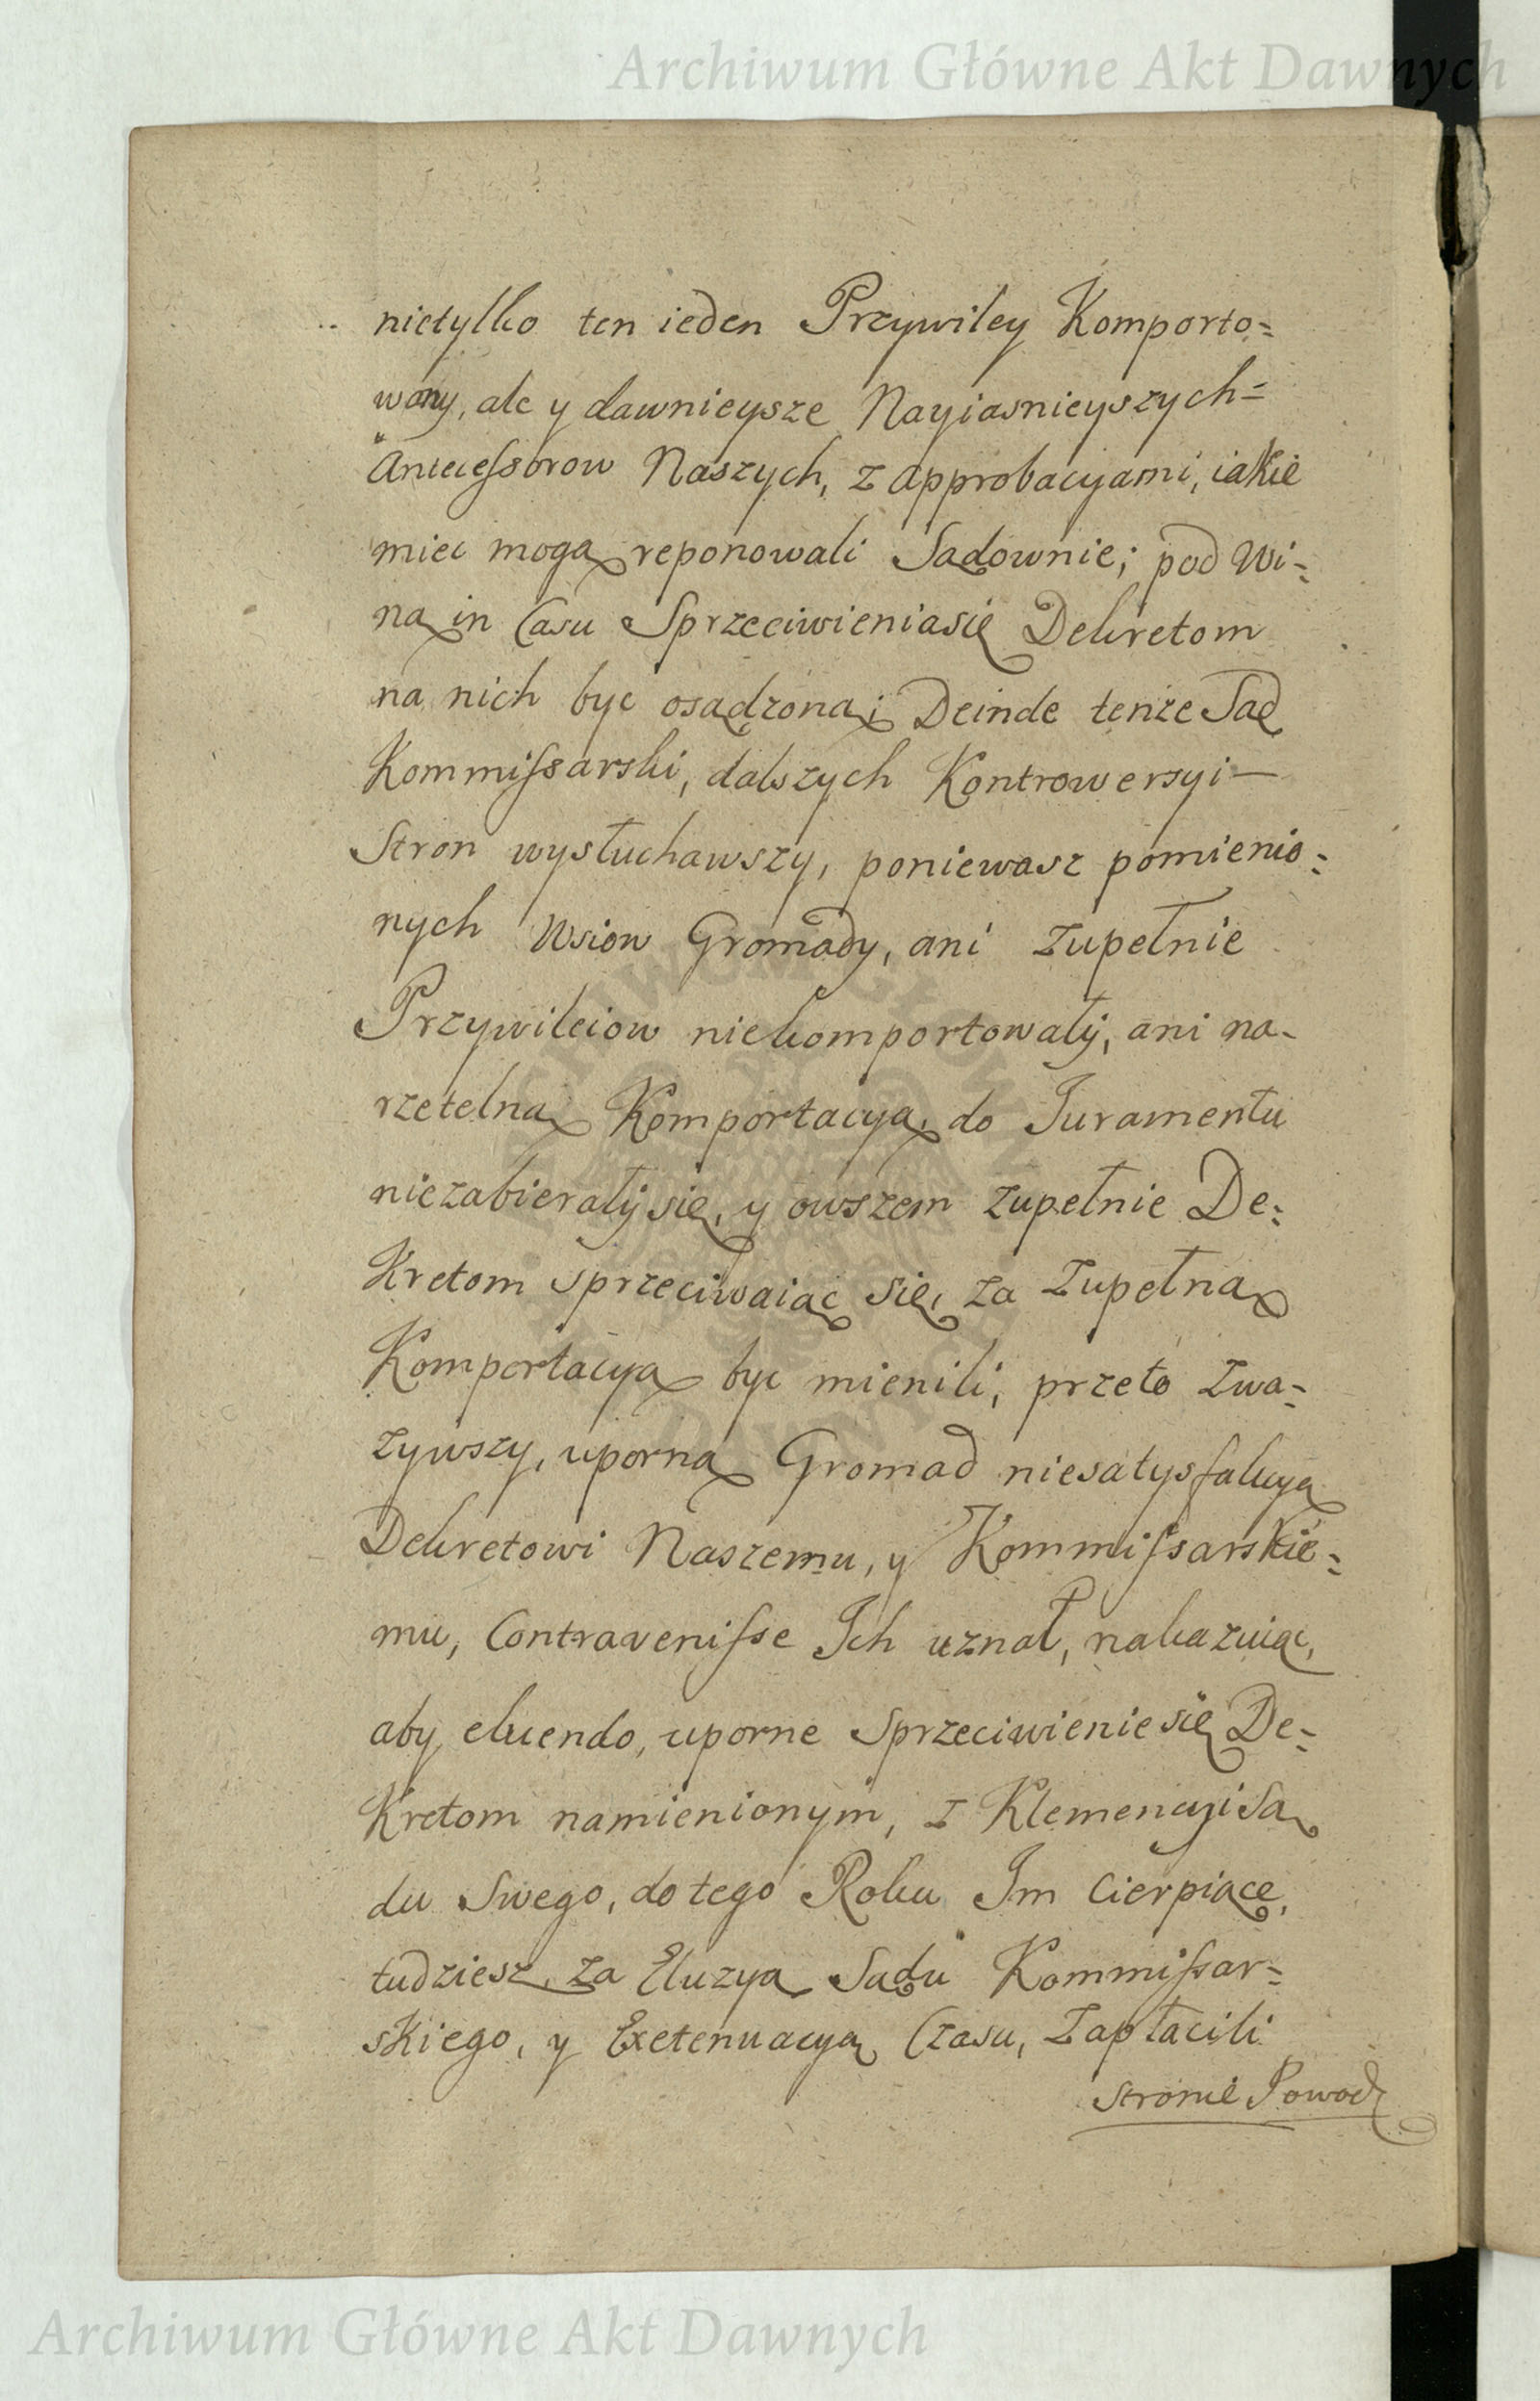 Archiwum Główne Akt Dawnych
nietylko ten ieden Przywiley Komporto=
wany, ale y dawnieysze Nayiasnieyszych=
Antecessorow Naszych, z approbacyami, iakie
miec mogą reponowali Sądownie; pod Wi=
ną in Casu Sprzeciwieniasię Dekretom
na nich byc osądzoną; Deinde tenże Sąd
Kommissarski, dalszych Kontrowersyi
Stron wysłuchawszy, poniewasz pomienio=
nych Wsiow Gromady, ani zupełnie
Przywileiow niekomportowały, ani na-
rzetelną Komportacyą, do Juramentu
niezabierały się, y owszem zupełnie De=
kretom sprzeciwaiąc się, za zupełną
Komportacyą byc mienili, przeto zwa=
zywszy, uporną Gromad niesatysfakcyą
Dekretowi Naszemu, y Kommissarskie=
mu, Contravenisse Ich uznał, nakazuiąc,
aby eluendo, uporne Sprzeciwienie się De=
kretom namienionym, z Klemencyi Są
du Swego, do tego Roku Im Cierpiące,
tudziesz za Eluzyą Sądu Kommissar=
skiego, y Exetenuacyą Czasu, Zapłacili
stronie Powod
Archiwum Główne Akt Dawnych